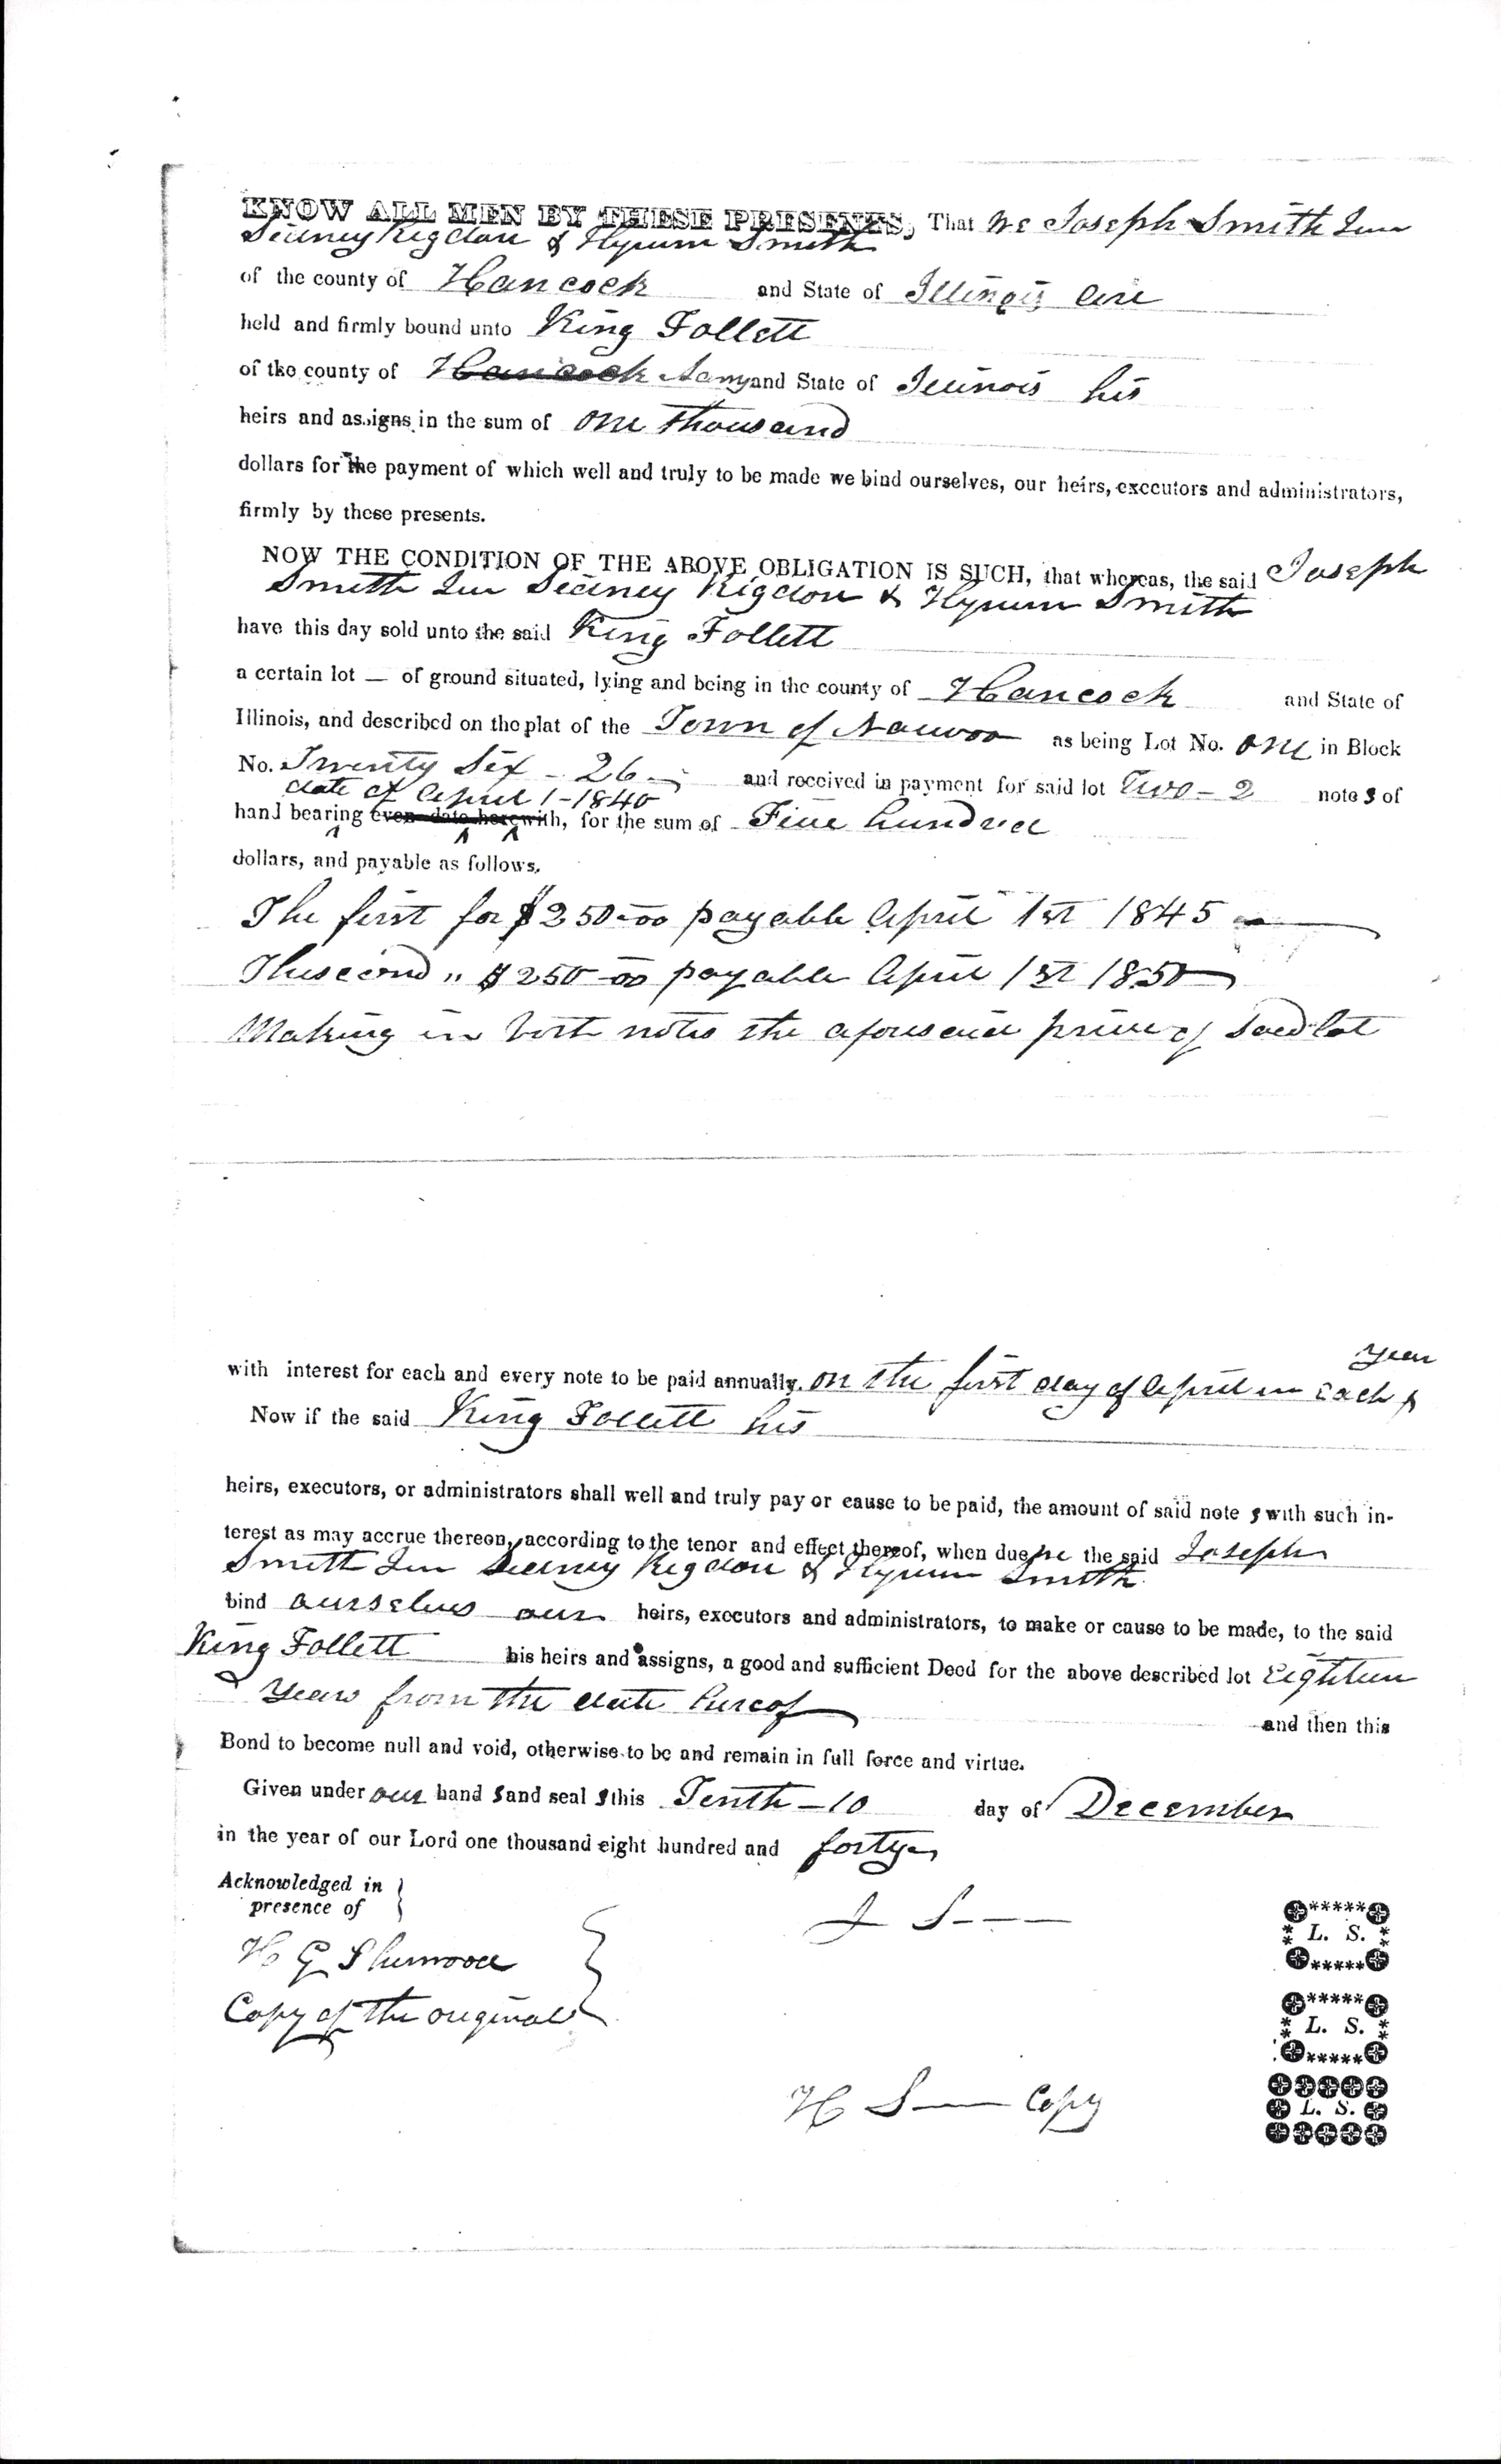 KNOW ALL MEN BY THESE PRESENTS, That we Joseph Smith Jun
Sidney Rigdon & Hyrum Smith
of the county of Hancock and State of Illinois are
held and firmly bound unto King Follett
of the county of Hancock and State of Illinois his
heirs and assigns in the sum of one thousand
dollars for the payment of which well and truly to be made we bind ourselves, our heirs, executors and administrators,
firmly by these presents.
NOW THE CONDITION OF THE ABOVE OBLIGATION IS SUCH, that whereas, the said Joseph
Smith Jun Sidney Rigdon & Hyrum Smith
have this day sold unto the said King Follett
a certain lot — of ground situated, lying and being in the county of Hancock and State of
Illinois, and described on the plat of the Town of Nauvoo as being Lot No. one in Block
No. Twenty Six - 26 - and received in payment for said lot Two - 2 notes of
date of April 1 - 1840
hand bearing even date herewith, for the sum of Five hundred
dollars, and payable as follows,
The first for $250-00 payable April 1st 1845
The second " $250-00 payable April 1st 1850
Making in both notes the aforesaid price of said lot
year
with interest for each and every note to be paid annually. on the first day of April in each
Now if the said King Follett his
heirs, executors, or administrators shall well and truly pay or cause to be paid, the amount of said note s with such in-
terest as may accrue thereon, according to the tenor and effect thereof, when due we the said Joseph
Smith Jun Sidney Rigdon & Hyrum Smith
bind ourselves our heirs, executors and administrators, to make or cause to be made, to the said
King Follett his heirs and assigns, a good and sufficient Deed for the above described lot Eighteen
years from the date hereof and then this
Bond to become null and void, otherwise to be and remain in full force and virtue.
Given under our hand s and seal s this Tenth - 10 day of December
in the year of our Lord one thousand eight hundred and forty
Acknowledged in
presence of
J S---
L. S.
H G Sherwood
Copy of the original
L. S.
H S— Copy
L. S.